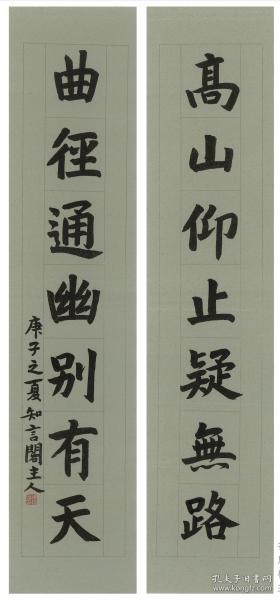 高山仰止疑無路
曲徑通幽别有天
庚子之夏知言閣主人
孔夫子旧书网